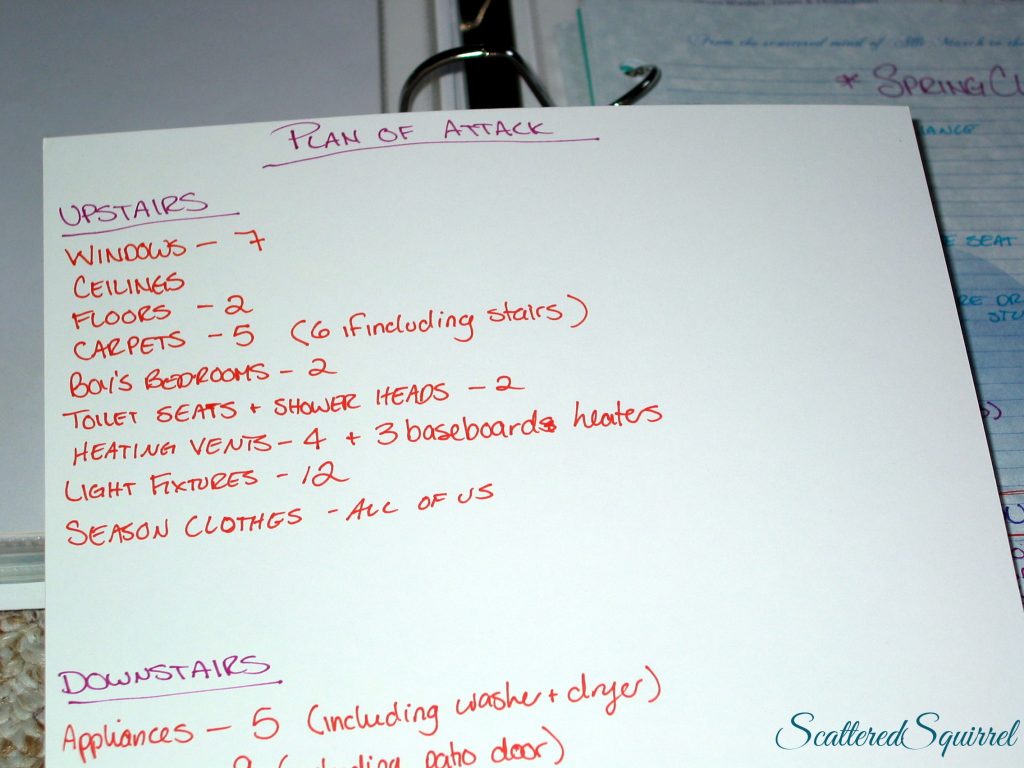 From the scattered mind of
* SPRING CL
PLAN OF ATTACK
UPSTAIRS
WINDOWS - 7
CEILINGS
FLOORS - 2
CARPETS - 5 (6 if including stairs)
BOY'S BEDROOMS - 2
TOILET SEATS + SHOWER HEADS - 2
HEATING VENTS - 4 + 3 baseboards heaters
LIGHT FIXTURES - 12
SEASON CLOTHES - ALL OF US
DOWNSTAIRS
Appliances - 5 (including washer + dryer)
patio door)
ANCE
E SEAT
RE OR
ScatteredSquirrel